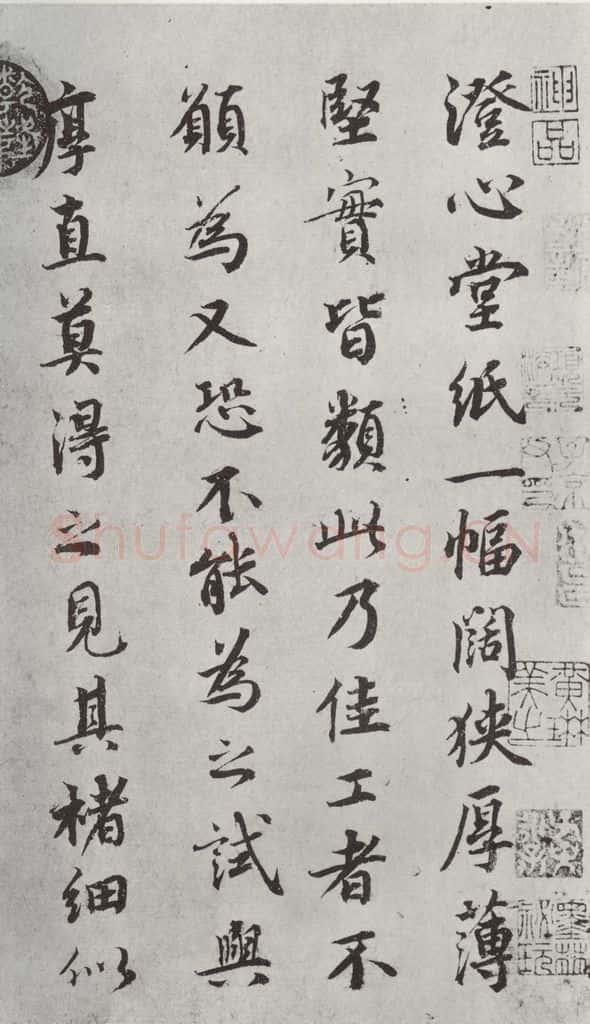 澄心堂紙一幅闊狹厚薄
堅實皆類此乃佳工者不
願為又恐不能為之試與
厚直莫得之見其楮細似
神品
shufawang.CN